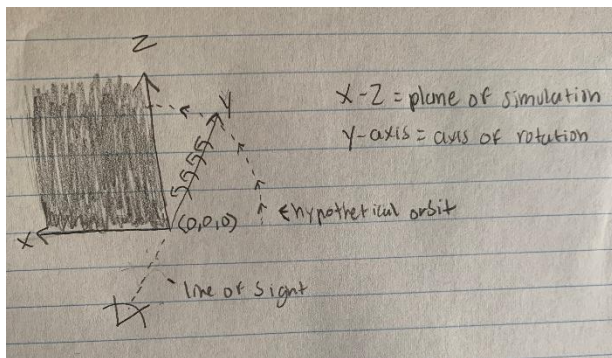 Z
Y
X-Z = plane of simulation
Y-axis = axis of rotation
X
(0,0,0)
hypothetical orbit
line of sight